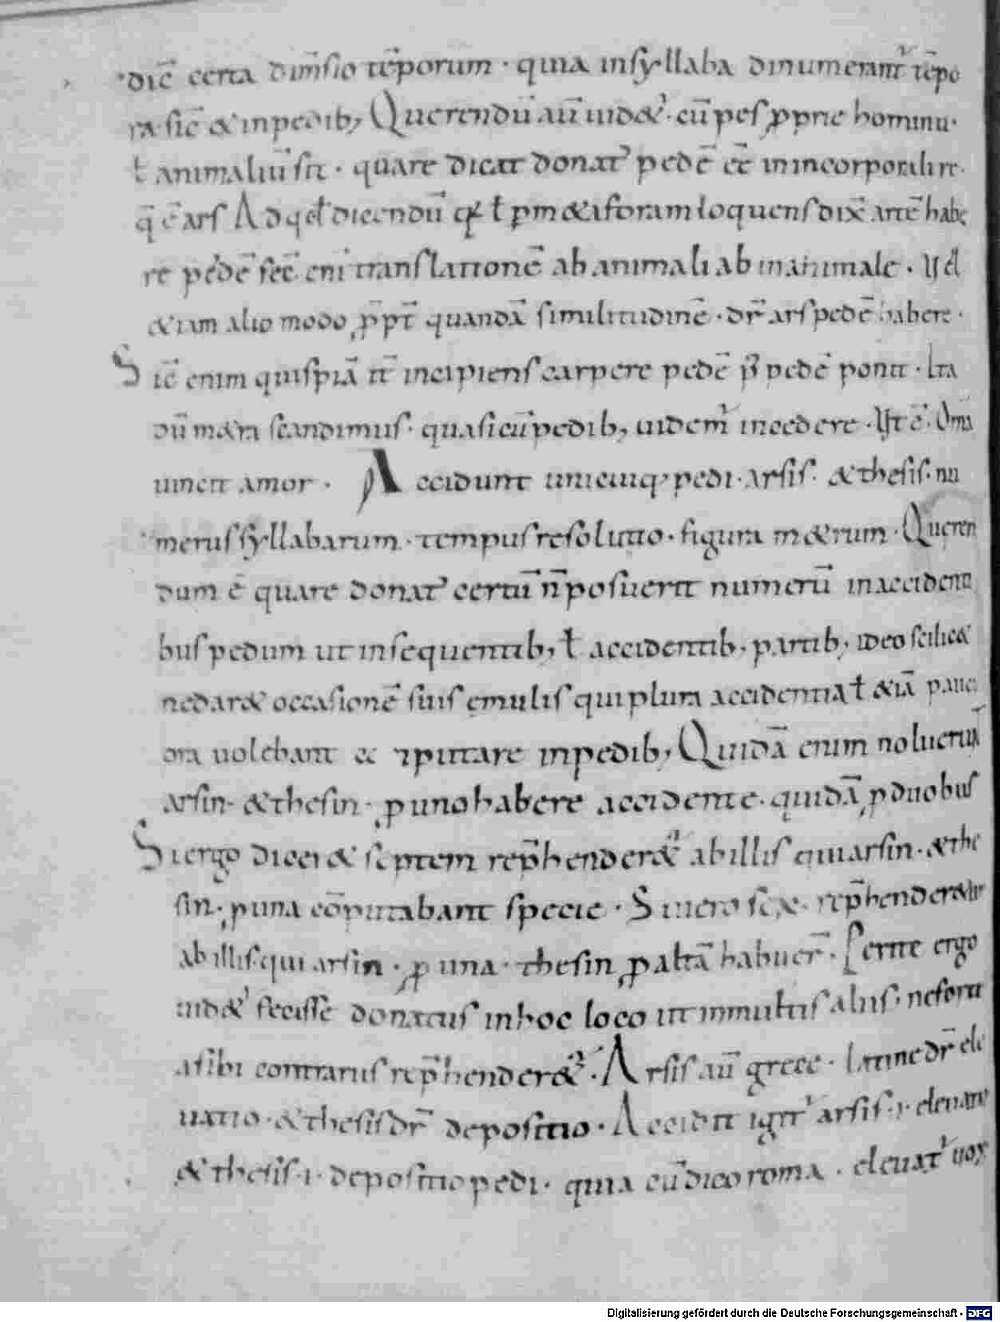 dic̄ certa dim̄sio tēporum · quia insyllaba dinumerant᷑ tēpo
ra sic̄ & inpedib; Querendū aū uid&᷑ · cū pes ꝓprie hominū ·
ł animaliū sit · quare dicat donat᷑ pedē eē inincorporali re ·
q̄ ē ars Ad dicendū ł &iforam loquens dix̄ artē habe
re pedē fec̄ eni translationē ab animali ab inanimale · Vel
&iam alio modo ꝓpt̄ quandā similitudinē · dr̄ ars pedē habere ·
Sic̄ enim quispiā it̄ incipiens carpere pedē p̄ pedē ponit · Ita
dū m&ra scandimus · quasi cū pedib; uidem᷑ incedere · Vt ē · Oīna
uincit amor · Accidunt unicuiq; pedi · arsis · & thesis · nu
merus syllabarum · tempus resolutio · figura m&rum · Queren
dum ē quare donat᷑ certū n̄ posuerit numerū inaccidenti
bus pedum ut insequentib; ł accidentib; partib; ideo scilic&
nedar& occasionē suis ęmulis qui plura accidentia ł &iā pauci
ora uolebant & ꝯputare inpedib; Quidā enim noluerunt
arsin · & thesin · ꝑ uno habere accidente · quidā ꝑ duobus
Si ergo dicer& septem rep̄hender&᷑ abillis qui arsin · & the
sin · ꝑ una cōputabant specie · Si uero sex · rep̄hender&ur
abillis qui arsin · ꝑ una · thesin ꝑ altā habuer̄ · Certe ergo
uid&᷑ fecisse donatus inhoc loco ut inmultis aliis · neforte
asibi contrariis rep̄hender&᷑ · Arsis aū grece · latine dr̄ ele
uatio · & thesis dr̄ depositio · Accidit igit᷑ arsis · i · eleuatio
& thesis · i · depositio pedi · quia cū dico roma · eleuat᷑ uox
Digitalisierung gefördert durch die Deutsche Forschungsgemeinschaft - DFG